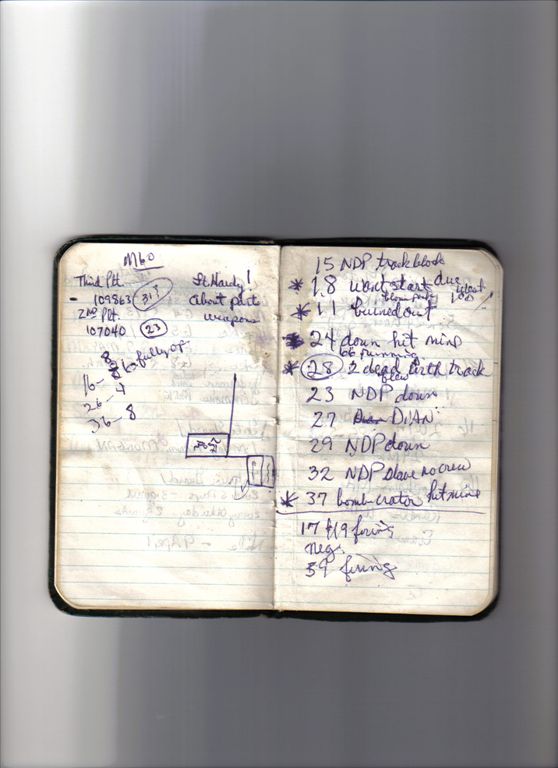 M60
Third Plt.
109863 313
2nd Plt.
107040 23
Lt Hardy!
about parts
weapons
8
16- fully op
26-4
36-8
15 NDP track block
* 18 wont start due
* 11 burned out
* 24 down hit mine
66 running
* 28 2 dead with track
23 NDP down
27 DiAN
29 NDP down
32 NDP slave no crew
* 37 bomb crater hit mine
17 + 19 firing
neg.
39 firing